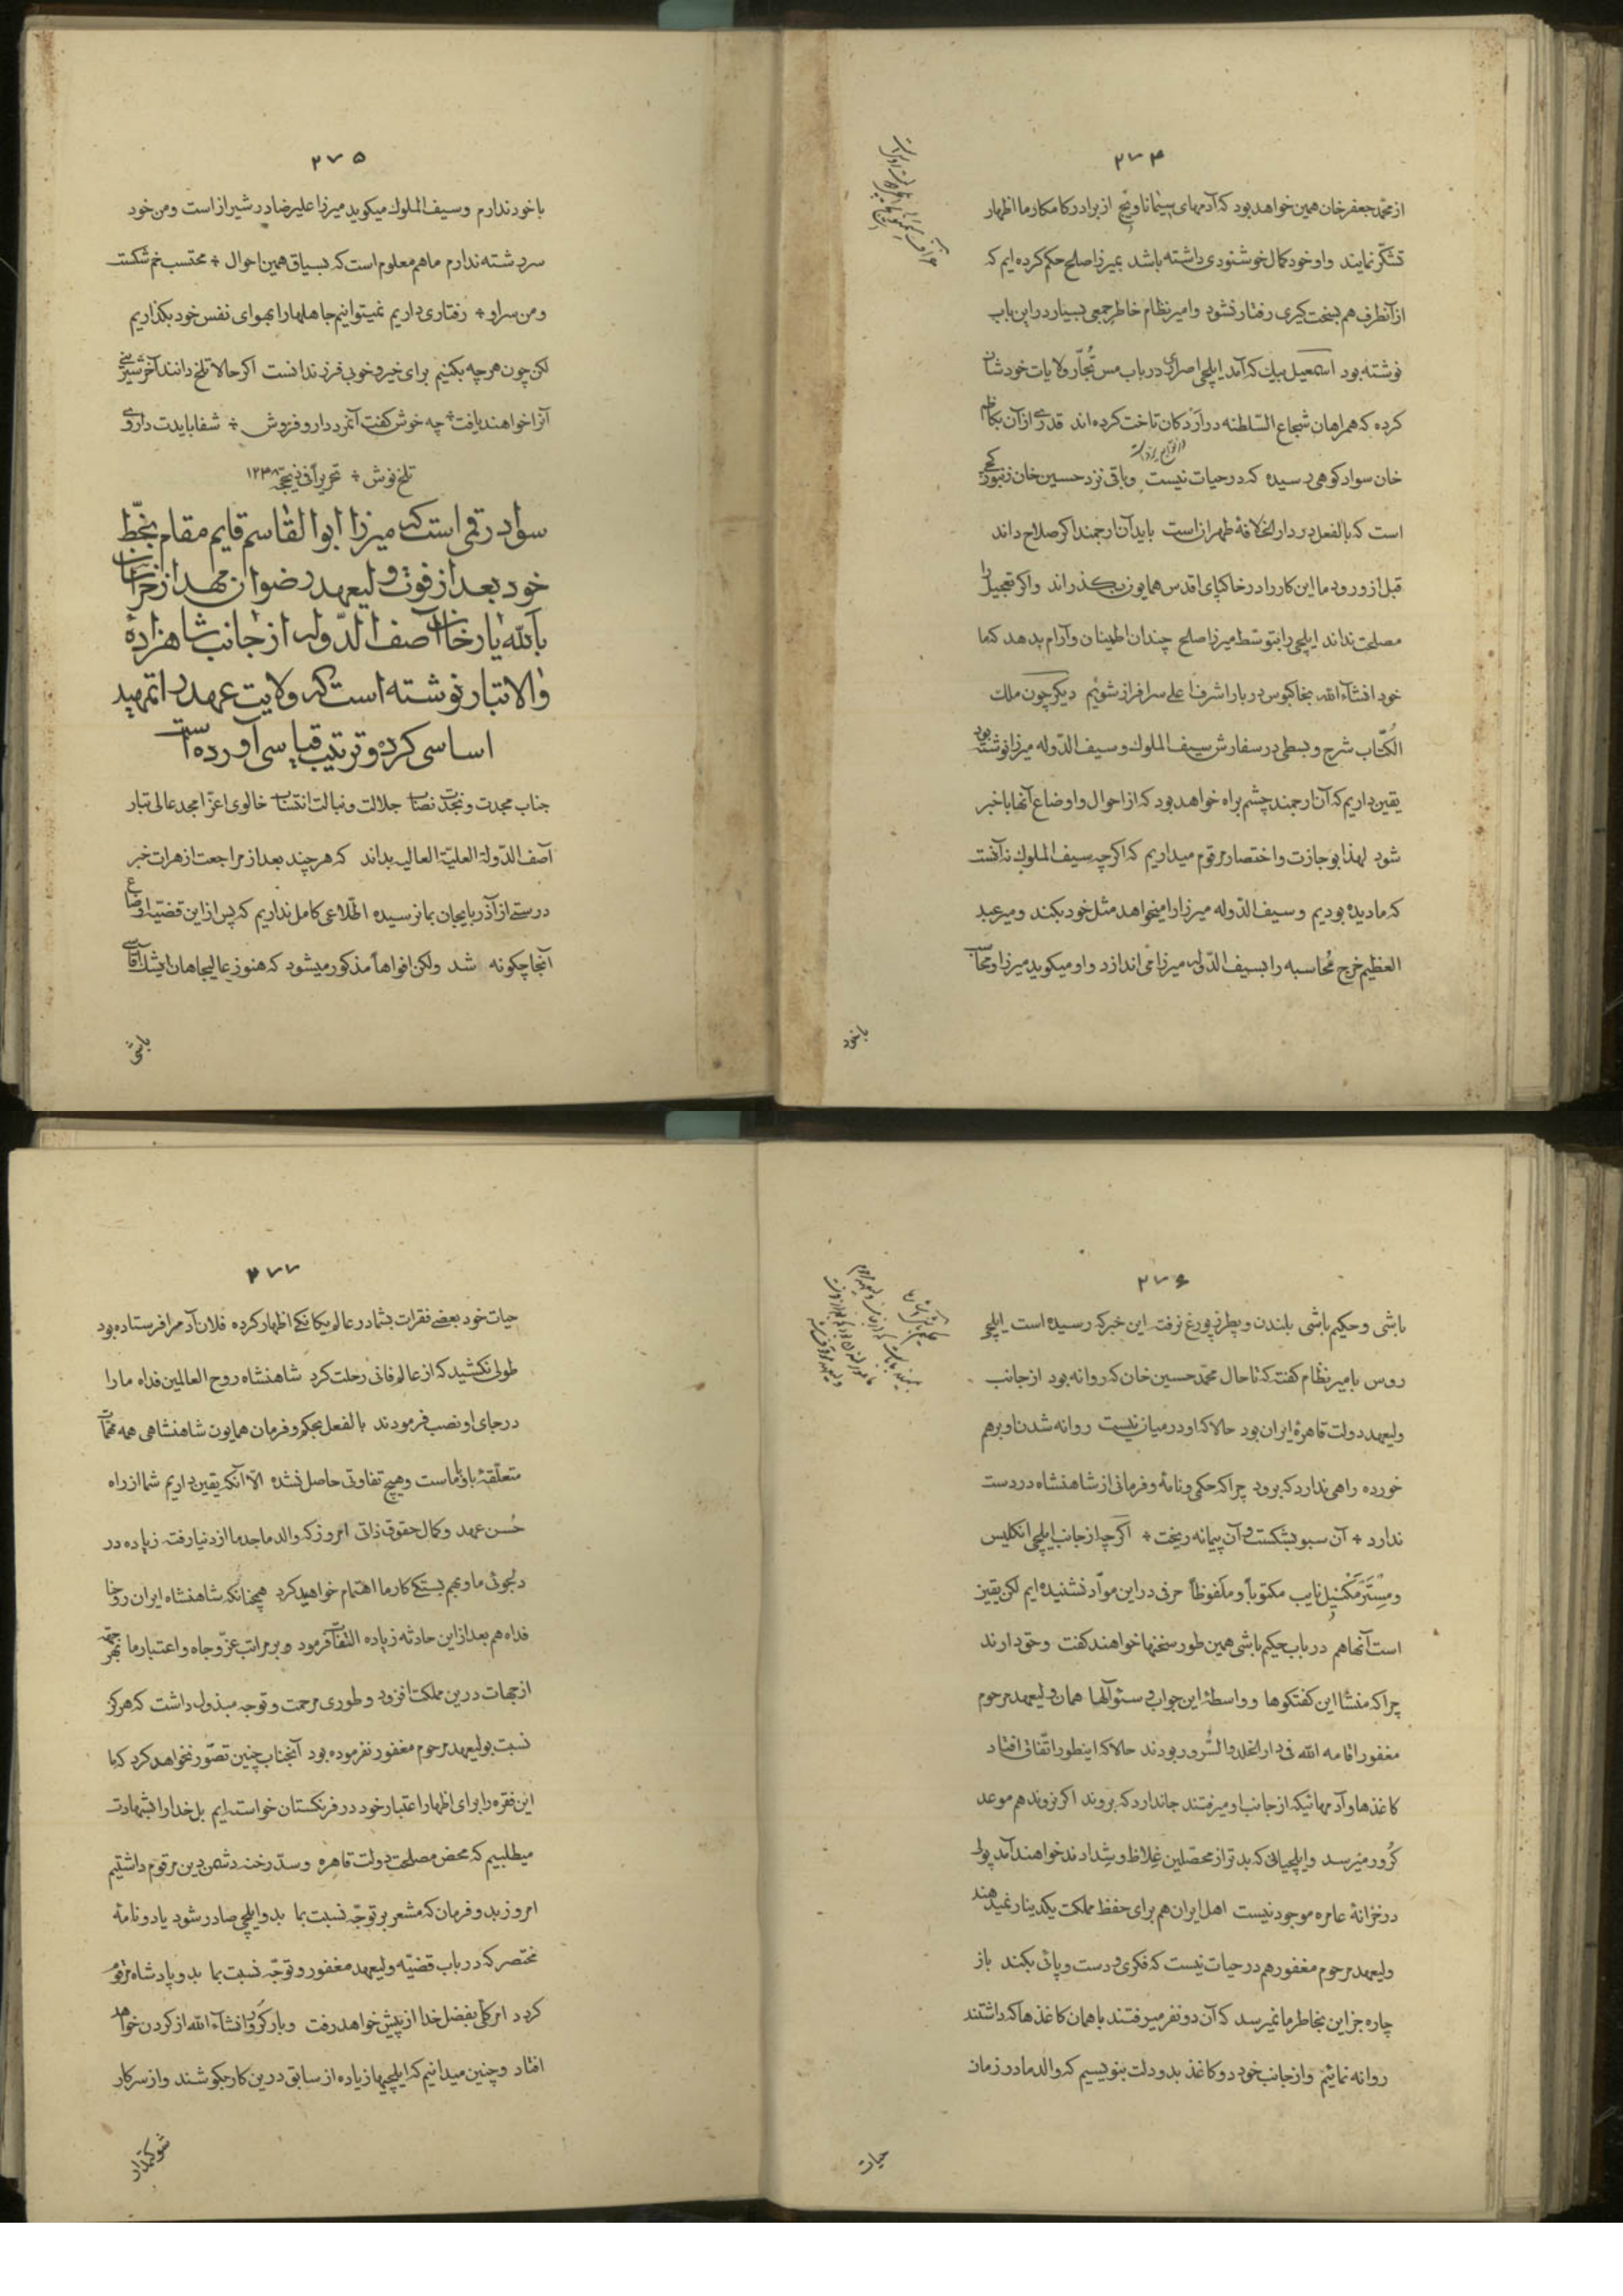 ۲۷۴
از محمد جعفر خان همین خواهد بود که آدمهای پسنماناویچ از برادر کامکار ما اظهار
تشکّر نمایند و او خود کمال خوشنودی داشته باشد بمیرزا صالح حکم کرده ایم که
از آنطرف هم بسخت کیری رفتار نشود و امیر نظام خاطر جمعی بسیار در این باب
نوشته بود اسمعیل بیك که آمد ایلچی اصراری در باب مس تجّار ولایات خودشان
کرده که همراهان شجاع السّلطنه در اردکان تاخت کرده اند قدری از آن بکاظم
خان سواد کوهی رسیده که در حیات نیست و باقی نزد حسین خان زنبورکچی
است که بالفعل در دار الخلافهٔ طهران است باید آن ارجمند اکر صلاح داند
قبل از ورود ما این کار را در خاکپای اقدس همایون بگذراند و اکر تعجیل را
مصلحت نداند ایلچی را بتوسّط میرزا صالح چندان اطمینان و آرام بدهد که ما
خود انشاءالله بخاکبوس دربار اشرف اعلی سرافراز شویم دیکر چون ملك
الکتّاب شرح و بسطی در سفارش سیف الملوك و سیف الدّوله میرزا نوشته بود
یقین داریم که آن ارجمند چشم براه خواهد بود که از احوال و اوضاع آنها با خبر
شود لهذا بوجازت و اختصار مرقوم میداریم که اکر چه سیف الملوك نه آنست
که ما دیده بودیم و سیف الدّوله میرزا را میخواهد مثل خود بکند و میر عبد
العظیم خرج محاسبه را بسیف الدّوله میرزا می اندازد و او میکوید میرزا و محاسب
با خود
۲۷۵
با خود ندارم و سیف الملوك میکوید میرزا علیرضا در شیراز است و من خود
سررشته ندارم ما هم معلوم است که بسیاق همین احوال ÷ محتسب خم شکست
و من سر او ÷ رفتاری داریم نمیتوانیم جاهلها را بهوای نفس خود بگذاریم
لکن چون هر چه بکنیم برای خیر و خوبی فرزندانست اکر حالا تلخ دانند آخر شیرینی
آنرا خواهند یافت ÷ چه خوش کفت آنمرد دارو فروش ÷ شفا بایدت داروی
تلخ نوش ÷ تحریراً فی ذیحجه ۱۲۳۸
سواد رقمی است که میرزا ابوالقاسم قایم مقام بخّط
خود بعد از فوت ولیعهد رضوان مهد از خراسان
بالله یار خان آصف الدّوله از جانب شاهزادهٔ
والا تبار نوشته است که ولایت عهد را تمهید
اساسی کرده و ترتیب قیاسی آورده است
جناب مجدت و نجدت نصاب جلالت و نبالت انتساب خالوی اعزّ امجد عالی تبار
آصف الدّولة العلیّة العالیه بداند که هر چند بعد از مراجعت از هرات خبر
درستی از آذربایجان بما نرسیده اطّلاعی کامل نداریم که پس از این قضیّه اوضاع
آنجا چکونه شد ولکن افواهاً مذکور میشود که هنوز عالیجاهان ایشك آقاسی
باشی
۲۷۶
باشی و حکیم باشی بلندن و پطرزپورغ نرفته این خبر که رسیده است ایلچی
روس بامیر نظام کفته که تا حال محمّد حسین خان که روانه بود از جانب
ولیعهد دولت قاهرهٔ ایران بود حالا که او در میان نیست روانه شدن او بر هم
خورده راهی ندارد که برود چرا که حکمی و نامه و فرمانی از شاهنشاه در دست
ندارد ÷ آن سبو بشکست و آن پیمانه ریخت ÷ اکر چه از جانب ایلچی انکلیس
و مستر مکنیل نایب مکتوباً و ملفوظاً حرفی در این موادّ نشنیده ایم لکن یقین
است آنها هم در باب حکیم باشی همین طور سخنها خواهند کفت و حق دارند
چرا که منشأ این کفتکوها و واسطهٔ این جواب و سئوالها همان ولیعهد مرحوم
مغفور اقامه الله فی دار الخلد والسّرور بودند حالا که اینطور اتّفاق افتاد
کاغذها و آدمهائیکه از جانب او میرفتند جا ندارد که بروند اکر نروند هم موعد
کرور میرسد و ایلچیانی که بدتر از محصّلین غلاظ و شدادند خواهند آمد پولی
در خزانهٔ عامره موجود نیست اهل ایران هم برای حفظ مملکت یکدینار نمیدهند
ولیعهد مرحوم مغفور هم در حیات نیست که فکری و دست و پائی بکند باز
چاره جز این بخاطر ما نمیرسد که آن دو نفر میرفتند با همان کاغذها که داشتند
روانه نمائیم و از جانب خود دو کاغذ بدو دولت بنویسیم که والد ما در زمان
حیات
۲۷۷
حیات خود بعضی فقرات بشما در عالم یکانکی اظهار کرده فلان آدم را فرستاده بود
طولی نکشید که از عالم فانی رحلت کرد شاهنشاه روح العالمین فداه ما را
در جای او نصب فرمودند بالفعل بحکم و فرمان همایون شاهنشاهی همه مهمّات
متعلّقهٔ باو با ماست و هیچ تفاوتی حاصل نشده الّا آنکه یقین داریم شما از راه
حُسن عهد و کمال حقوق ذاتی امروز که والد ماجد ما از دنیا رفته زیاده در
دلجوئی ما و بهم بستکی کار ما اهتمام خواهید کرد همچنانکه شاهنشاه ایران روحنا
فداه هم بعد از این حادثه زیاده التفات فرمود و بر مراتب عزّ و جاه و اعتبار ما بهر جهت
از جهات درین مملکت افزود و طوری مرحمت و توجه مبذول داشت که هرکز
نسبت بولیعهد مرحوم مغفور نفرموده بود آنجناب چنین تصوّر نخواهد کرد که ما
این فقره را برای اظهار اعتبار خود در فرنکستان خواسته ایم بل خدا را بشهادت
میطلبیم که محض مصلحت دولت قاهره و سدّ رخنه دشمن دین مرقوم داشتیم
امروز بدو فرمان که مشعر بر توجّه نسبت بما بدو ایلچی صادر شود یا دو نامهٔ
مختصر که در باب قضیّه ولیعهد مغفور و توجّه نسبت بما بدو پادشاه مرقوم
کردد امر کلّی بفضل خدا از پیش خواهد رفت و بار کرور انشاءالله از کردن خواهد
افتاد و چنین میدانیم که ایلچیها زیاده از سابق درین کار بکوشند و از سرکار
شوکتمدار